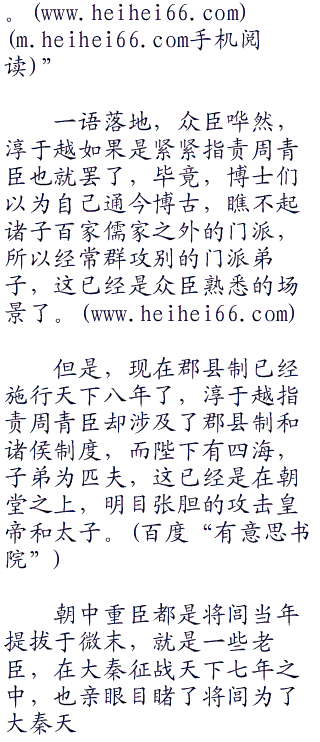 。(www.heihei66.com)
(m.heihei66.com手机阅
读)”
一语落地，众臣哗然，
淳于越如果是紧紧指责周青
臣也就罢了，毕竟，博士们
以为自己通今博古，瞧不起
诸子百家儒家之外的门派，
所以经常群攻别的门派弟
子，这已经是众臣熟悉的场
景了。(www.heihei66.com)
但是，现在郡县制已经
施行天下八年了，淳于越指
责周青臣却涉及了郡县制和
诸侯制度，而陛下有四海，
子弟为匹夫，这已经是在朝
堂之上，明目张胆的攻击皇
帝和太子。(百度“有意思书
院”)
朝中重臣都是将闾当年
提拔于微末，就是一些老
臣，在大秦征战天下七年之
中，也亲眼目睹了将闾为了
大秦天